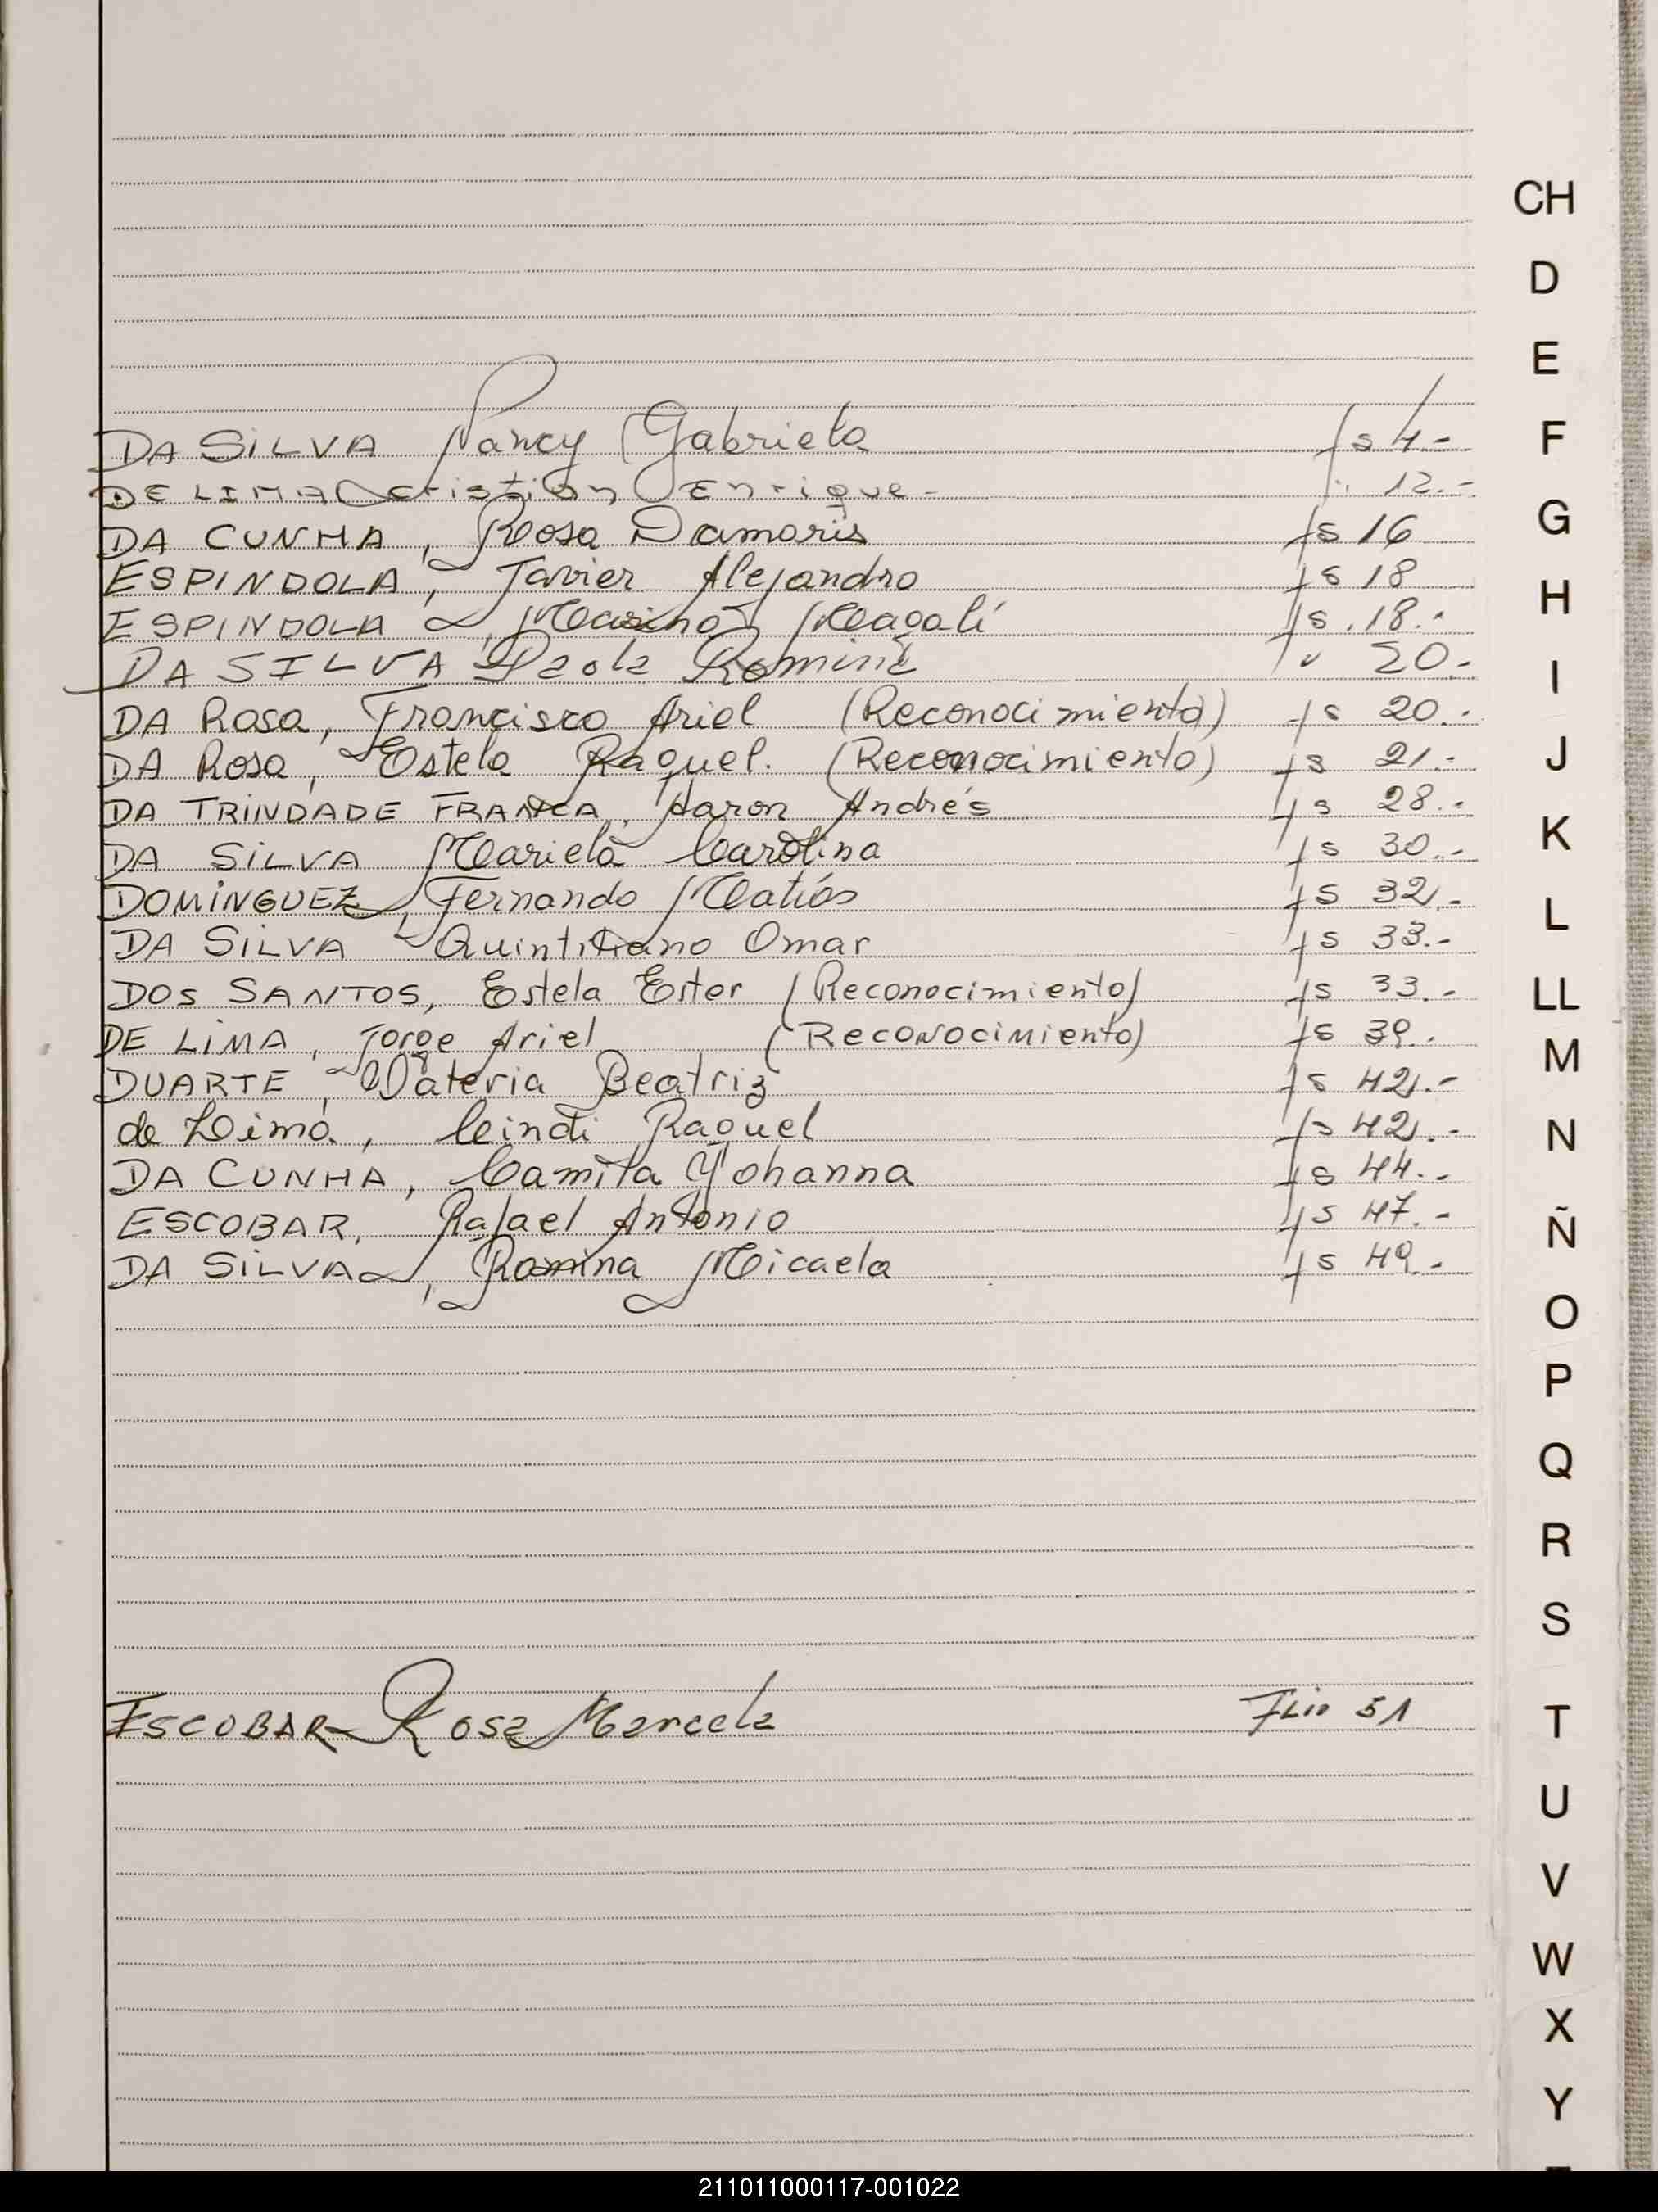 DA SILVA Nancy Gabriela fs 4.-
DE LIMA Cristian Enrique.- 12.-
DA CUNHA, Rosa Damaris fs 16
ESPINDOLA, Javier Alejandro fs 18
ESPINDOLA, Magali fs. 18.-
DA SILVA Paola Romina " 20.-
DA Rosa, Francisco Ariel (Reconocimiento) fs 20.-
DA Rosa, Estela Raquel. (Reconocimiento) fs 21.-
DA TRINDADE FRANCA, Aaron Andrés fs 28.-
DA SILVA Mariela Carolina fs 30.-
DOMINGUEZ, Fernando Matías fs 32.-
DA SILVA Quintiliano Omar fs 33.-
DOS SANTOS, Estela Ester (Reconocimiento) fs 33.-
DE LIMA, Jorge Ariel (RECONOCIMIENTO) fs 39.-
DUARTE, Valeria Beatriz fs 42.-
de Lima, Cindi Raquel fs 42.-
DA CUNHA, Camila Yohanna fs 44.-
ESCOBAR, Rafael Antonio fs 47.-
DA SILVA, Romina Micaela fs 49.-
ESCOBAR Rosa Marcela FLio 51
CH
D
E
F
G
H
I
J
K
L
LL
M
N
Ñ
O
P
Q
R
S
T
U
V
W
X
Y
211011000117-001022